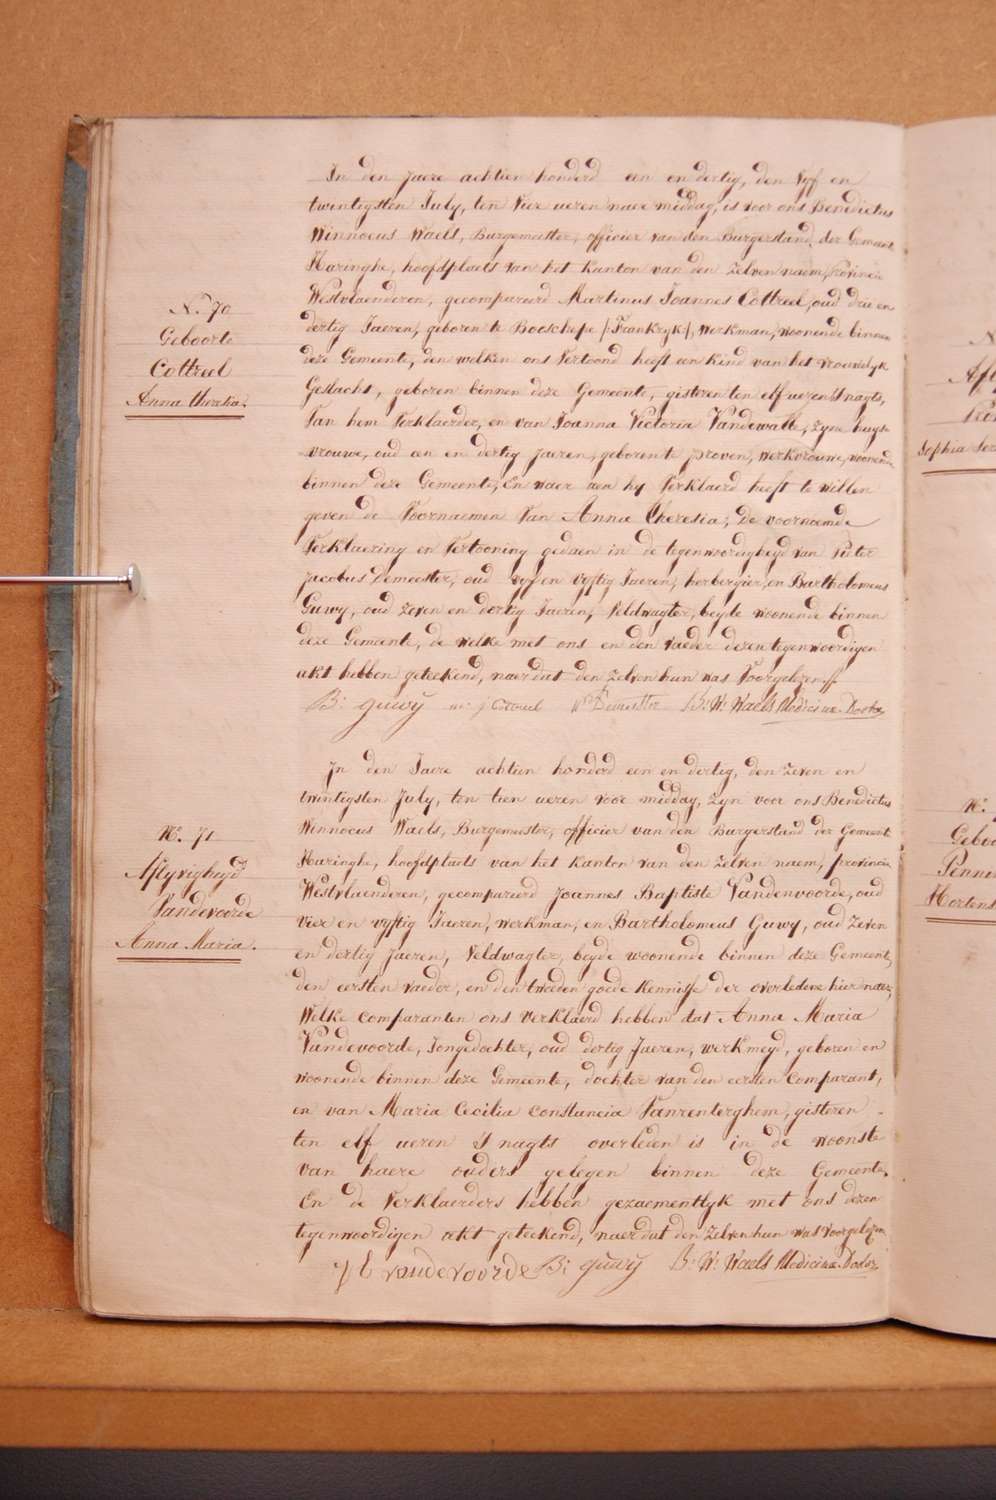 N.º 70
Geboorte
Cottreel
Anna theresia.
In den jaere achtien honderd een en dertig, den vyf en
twintigsten July, ten vier ueren naer middag, is voor ons Benedictus
Winnocus Waels, Burgemeester, officier van den Burgerstand, der Gemeente
Haringhe, hoofdplaets van het kanton van den zelven naem, provincie
Westvlaenderen, gecompareerd Martinus Joannes Cottreel, oud drie en
dertig Jaeren, geboren te Booschepe /Frankryk/, werkman, woonende binnen
deze Gemeente, den welken ons vertoond heeft een kind van het vrouwelyk
Geslacht, geboren binnen deze Gemeente, gisteren ten elf ueren 's nagts,
Van hem verklaerder, en van Joanna Victoria Vandewalle, zyne huys-
-vrouwe, oud een en dertig jaeren, geboren te proven, werkvrouwe, woonende
binnen deze Gemeente, En waer aen hy verklaerd heeft te willen
geven de Voornaemen Van Anna theresia; De voornoemde
Verklaering en Vertooning gedaen in de tegenwoordigheyd van Pieter
jacobus Demeester, oud vyf en vyftig Jaeren, herbergier, en Bartholomeus
Guwy, oud zeven en dertig Jaeren, Veldwagter, beyde woonende binnen
deze Gemeente, de welke met ons en den vaeder dezen tegenwoordigen
akt hebben geteekend, naer dat den zelven hun was voorgelezen
B: guwy Demeester B: W: Waels Medicinæ Doctor
N.º 71
Aflyvigheyd
Vandevoorde
Anna Maria.
In den Jaere achtien honderd een en dertig, den zeven en
twintigsten July, ten tien ueren voor middag, zyn voor ons Benedictus
Winnocus Waels, Burgemeester, officier van den Burgerstand der Gemeente
Haringhe, hoofdplaets van het kanton van den zelven naem, provincie
Westvlaenderen, gecompareerd Joannes Baptiste Vandenvoorde, oud
vier en vyftig Jaeren, werkman, en Bartholomeus Guwy, oud zeven
en dertig jaeren, Veldwagter, beyde woonende binnen deze Gemeente,
den eersten vaeder, en den tweeden goede kennisse der overledene hier naer,
Welke comparanten ons verklaerd hebben dat Anna Maria
Vandevoorde, Jongedochter, oud dertig Jaeren, werkmeyd, geboren en
woonende binnen deze Gemeente, dochter van den eersten Comparant,
en van Maria Cecilia Constancia Vanrenterghem, gisteren
ten elf ueren 's nagts overleden is in de woonste
van haere ouders gelegen binnen deze Gemeente.
En de Verklaerders hebben gezaementlyk met ons dezen
tegenwoordigen akt geteekend, naer dat den zelven hun was voorgelezen
vandevoorde B: guwy B: W: Waels Medicinæ Doctor
Geboo
Penni
Mortens
Sophia